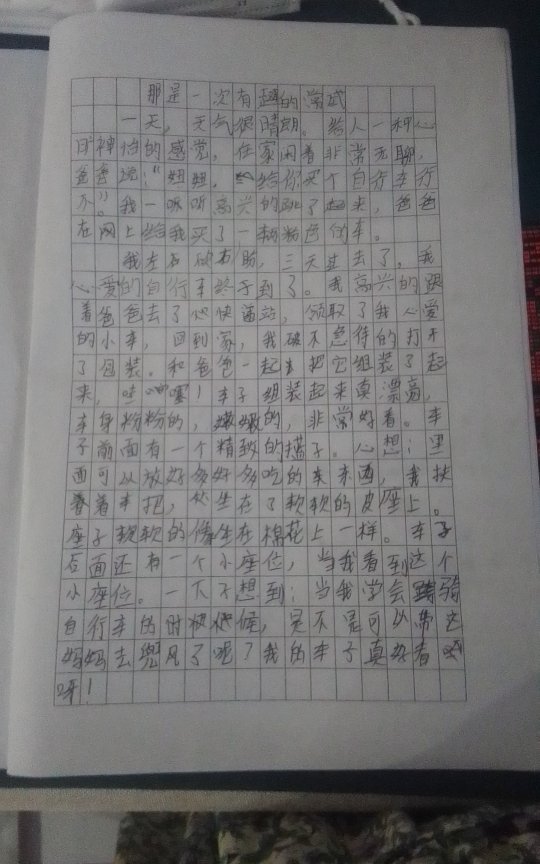 那是一次有趣的尝试
一天,天气很晴朗。给人一种心
旷神怡的感觉,在家闲着非常无聊,
爸爸说:“妞妞,给你买个自行车行
不”。我一听听高兴的跳了起来,爸爸
在网上给我买了一辆粉色的车。
我左盼右盼,三天过去了,我
心爱的自行车终于到了。我高兴的跟
着爸爸去了快递站,领取了我心爱
的小车,回到家,我破不急待的打开
了包装。和爸爸一起把它组装了起
来,哇!车子组装起来真漂亮,
车身粉粉的,嫩嫩的,非常好看。车
子前面有一个精致的揽子。心想:里
面可以放好多好多吃的东西,我扶
着车把,坐在了软软的皮座上。
座子软软的像坐在棉花上一样。车子
后面还有一个小座位,当我看到这个
小座位。一下子想到:当我学会骑
自行车的时候,是不是可以带这
妈妈去兜风了呢?我的车子真好看
呀!